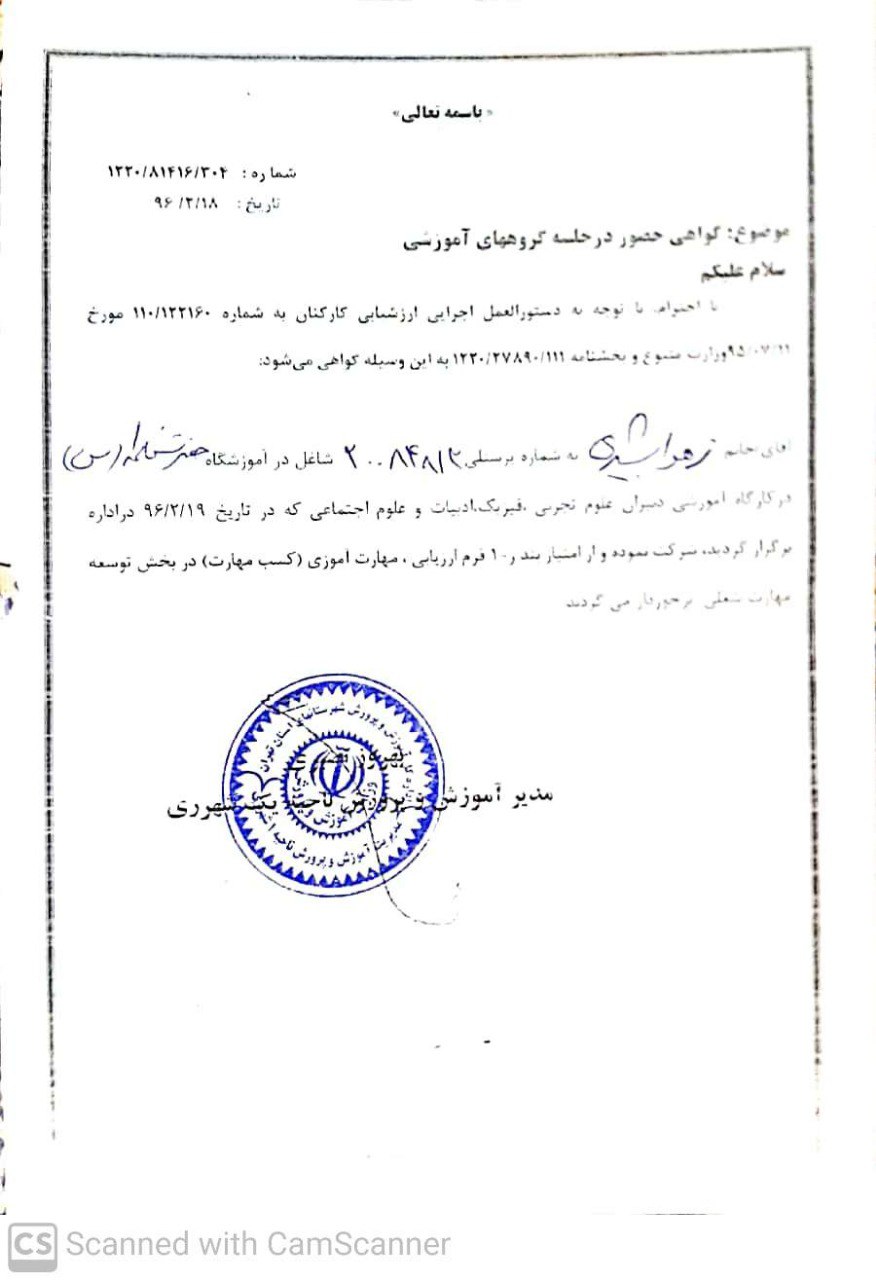 « باسمه تعالی»
شماره : ۱۲۲۰/۸۱۴۱۶/۳۰۴
تاریخ : ۹۶/۲/۱۸
موضوع: گواهی حضور در جلسه گروههای آموزشی
سلام علیکم
با احترام، با توجه به دستورالعمل اجرایی ارزشیابی کارکنان به شماره ۱۱۰/۱۲۲۱۶۰ مورخ
۹۵/۰۷/۲۱ وزارت متبوع و بخشنامه ۱۲۲۰/۲۷۸۹۰/۱۱۱ به این وسیله کواهی می‌شود:
آقای/خانم زهرا به شماره پرسنلی ۲۰۰۸۴۸۱۲ شاغل در آموزشگاه حضرت (س)
در کارگاه آموزشی دبیران علوم تجربی ،فیزیک،ادبیات و علوم اجتماعی که در تاریخ ۹۶/۲/۱۹ دراداره
برگزار گردید، شرکت نموده و از امتیاز بند ر-۱۰ فرم ارزیابی ، مهارت آموزی (کسب مهارت) در بخش توسعه
مهارت شغلی برخوردار می گردند
مدیر آموزش و پرورش ناحیه یک شهرری
آموزش و پرورش شهرستانهای استان تهران
وزارت آموزش و پرورش
مدیریت آموزش و پرورش ناحیه ۱
CS Scanned with CamScanner